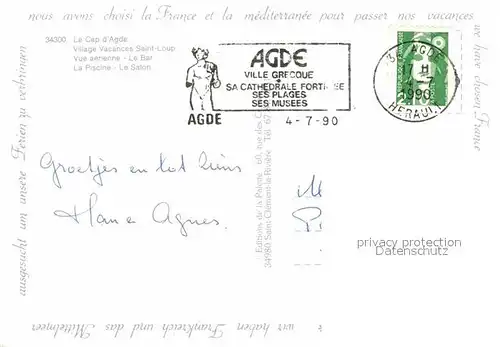 nous avons choisi la France et la méditerranée pour passer nos vacances
we have chosen France
34300 Le Cap d'Agde
Village Vacances Saint-Loup
Vue aérienne - Le Bar
La Piscine - Le Salon
AGDE
AGDE
VILLE GRECQUE
SA CATHEDRALE FORTIFIEE
SES PLAGES
SES MUSEES
4-7-90
34 AGDE
H
4-7
1990
HERAULT
Groetjes en tot ziens
Han e Agnes.
Editions de la Palette
34980 Saint-Clément-la-Rivière
privacy protection
Datenschutz
wir haben Frankreich und das Mittelmeer
ausgesucht um unsere Ferien zu verbringen